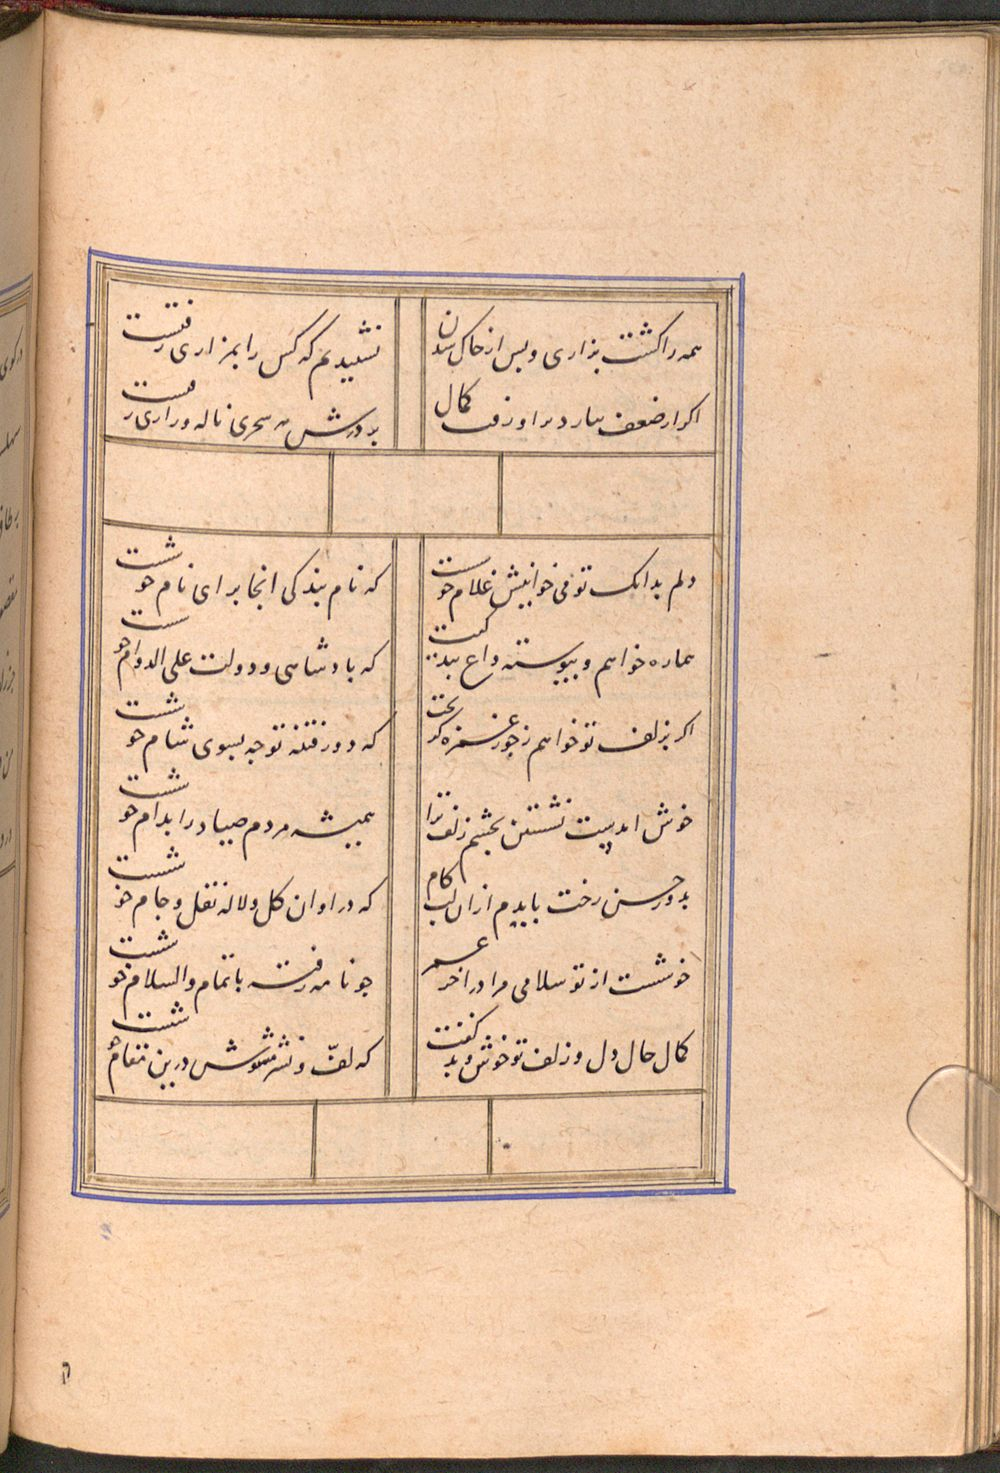 همه را کشت بزاری و پس از خاک شدن
نشنیدیم که کس را بمزاری رفتست
اکر از ضعف نیارد بر او رفت کمال
بر درش هر سحری ناله و زاری رفتست
دلم بدانک تو فی خوانیش غلام خوشست
که نام بندکی انجا برای نام خوشست
هماره خواهم و پیوسته داع بندکیت
که بادشاهی و دولت علی الدوام خوشست
اکر بزلف تو خواهم ز جور غمزه کریخت
که دور فتنه توجه بسوی شام خوشست
خوش امدیت نشستن بچشم زلف ترا
همیشه مردم صیاد را بدام خوشست
بدور حسن رخت بایدم ازان لب کام
که در اوان کل و لاله نقل و جام خوشست
خوشست از تو سلامی مرا در اخر عمر
جو نامه رفت باتمام والسلام خوشست
کمال حال دل و زلف تو خوش و بد گفت
که لفّ و نشر مشوش درین مقام خوشست